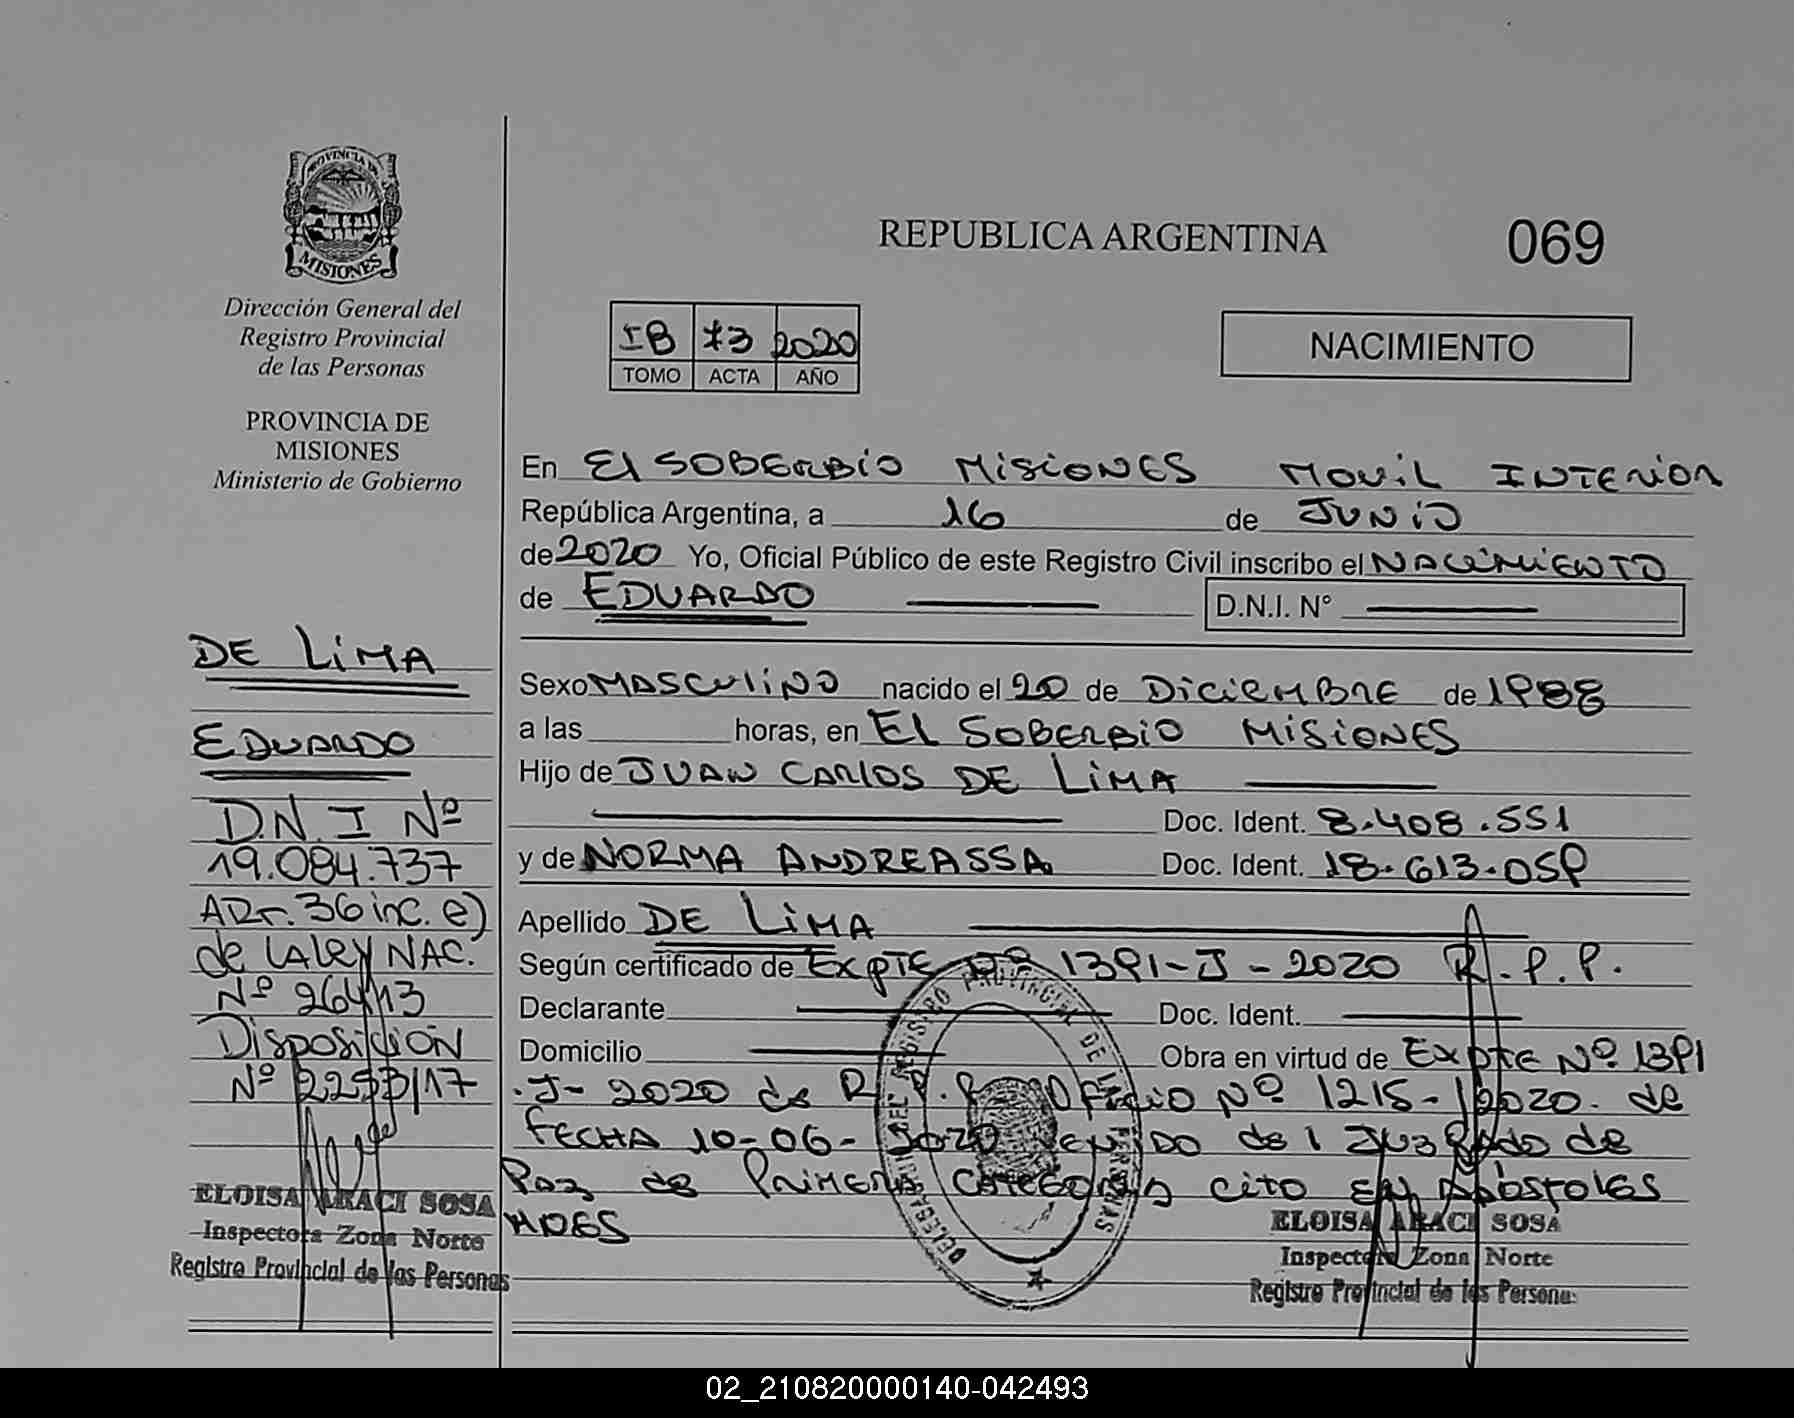 PROVINCIA DE
MISIONES
Dirección General del
Registro Provincial
de las Personas
PROVINCIA DE
MISIONES
Ministerio de Gobierno
DE LiMA
EDUARDO
D.N.I Nº
19.084.737
ARt. 36 inc. e)
de LA ley NAC.
Nº 26413
Disposición
Nº 2253/17
ELOISA ARACI SOSA
Inspectora Zona Norte
Registro Provincial de las Personas
REPUBLICA ARGENTINA
069
IB 73 2020
TOMO ACTA AÑO
NACIMIENTO
En El SOBERBiO MiSiONES MOViL INTERiOR
República Argentina, a 16 de JUNiO
de 2020 Yo, Oficial Público de este Registro Civil inscribo el NACiMiENTO
de EDUARDO D.N.I. N°
Sexo MASCuliNO nacido el 20 de DiCiEMBRE de 1988
a las horas, en El SOBERBiO MiSiONES
Hijo de JUAN CARlOS DE LiMA
Doc. Ident. 8.408.551
y de NORMA ANDREASSA Doc. Ident. 18.613.059
Apellido DE LiMA
Según certificado de ExpTE Nº 1391-J-2020 R.P.P.
Declarante Doc. Ident.
Domicilio Obra en virtud de ExpTE Nº 1391
-J-2020 de R.P.P. OFicio Nº 1215-/2020. de
FECHA 10-06-2020 del Juzgado de
Paz de PRiMERA CATEGORiA cito EN APOSTOlES
MNES
DELEGACION DEL REGISTRO PROVINCIAL DE LAS PERSONAS
ELOISA ARACI SOSA
Inspectora Zona Norte
Registro Provincial de las Persona
02_210820000140-042493